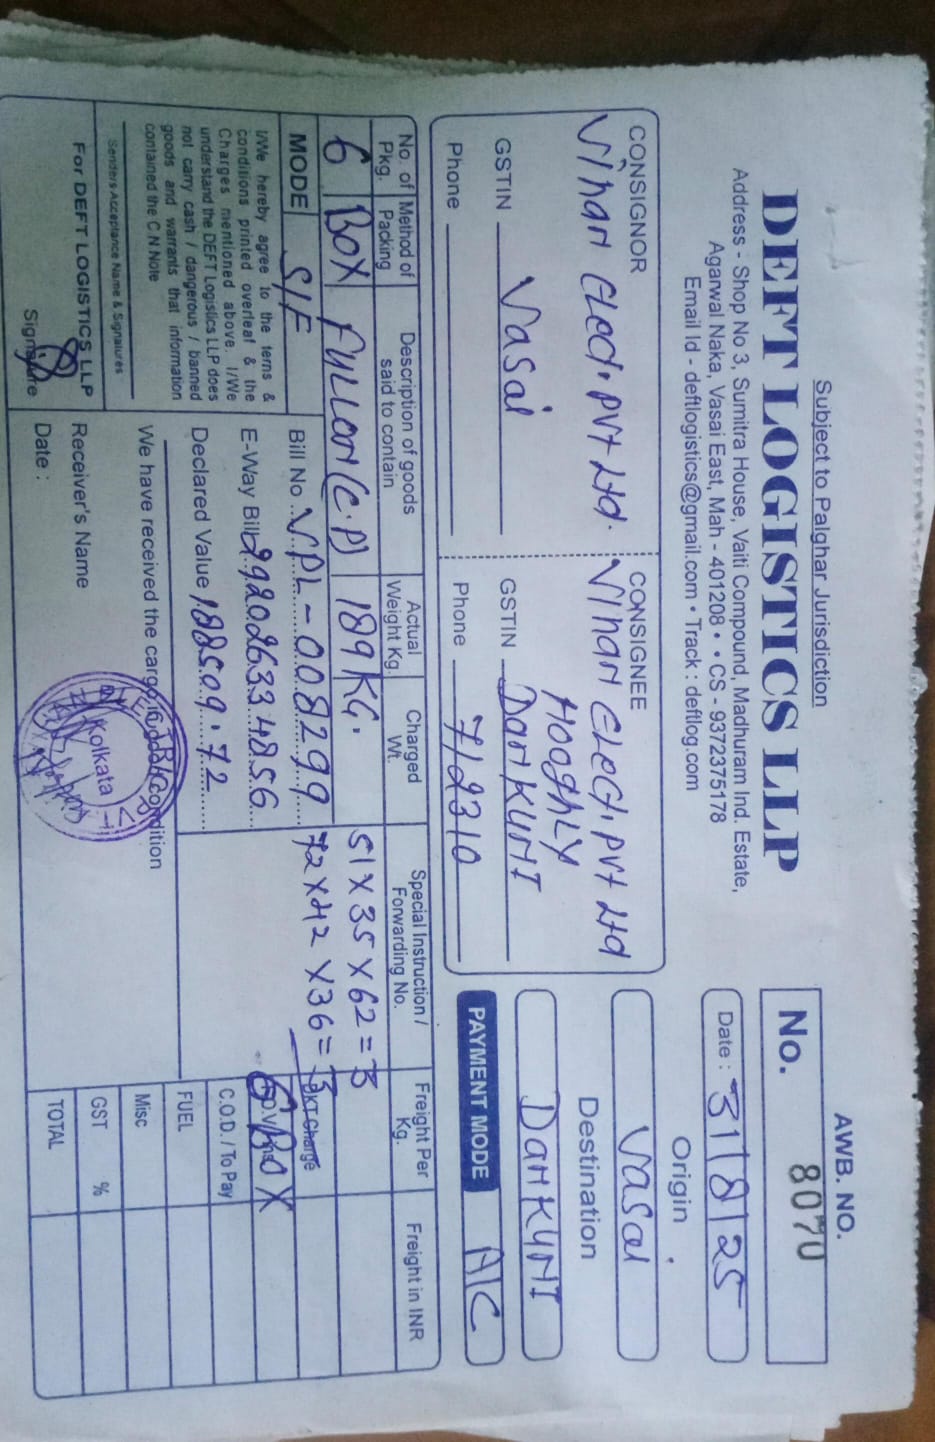 Subject to Palghar Jurisdiction
DEFT LOGISTICS LLP
Address - Shop No 3, Sumitra House, Vaiti Compound, Madhuram Ind. Estate,
Agarwal Naka, Vasai East, Mah - 401208 • • CS - 9372375178
Email Id - deftlogistics@gmail.com • Track : deftlog.com
AWB. NO.
No. 8070
Date : 31/8/25
Origin
Vasai
Destination
DanKUNI
PAYMENT MODE A/C
CONSIGNOR
Vihan Elect. Pvt Ltd.
Vasai
GSTIN
Phone
CONSIGNEE
Vihan Elect. Pvt Ltd
HooghLY
GSTIN DanKUNI
Phone 712310
No. of Pkg.
Method of Packing
Description of goods said to contain
Actual Weight Kg.
Charged Wt.
Special Instruction / Forwarding No.
Freight Per Kg.
Freight in INR
6 Box FULLON (C.P) 189 KG.
51 X 35 X 62 = 3
72 X 42 X 36 = 3
6 BOX
MODE S/F
Bill No. VPL-008299
E-Way Bill
Declared Value 188509.72
DKT Charge
C.O.D. / To Pay
FUEL
Misc
GST %
TOTAL
I/We hereby agree to the terns &
conditions printed overleaf & the
Charges mentioned above. I/We
understand the DEFT Logistics LLP does
not carry cash / dangerous / banned
goods and warrants that information
contained the C N Note
Senders Acceptance Name & Signatures
For DEFT LOGISTICS LLP
Signature
We have received the cargo in good condition
Receiver's Name
Date :
Kolkata